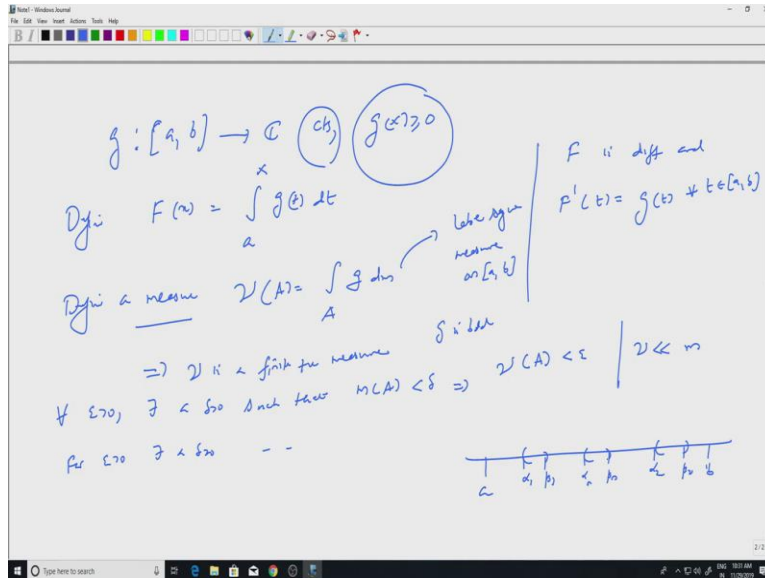 Note1 - Windows Journal
File Edit View Insert Actions Tools Help
B I
g : [a, b] → ℂ cts, g(x) ≥ 0
Define F(x) = ∫ₐˣ g(t) dt
F is diff and
F'(t) = g(t) ∀ t ∈ [a, b]
Define a measure ν(A) = ∫_A g dm → Lebesgue
measure
on [a, b]
g is bdd
⇒ ν is a finite +ve measure
∀ ε>0, ∃ a δ>0 such that m(A) < δ ⇒ ν(A) < ε | ν << m
For ε>0 ∃ a δ>0 - -
a α₁ β₁ αₙ βₙ α₂ β₂ b
2/2
Type here to search
ENG 10:31 AM
IN 11/29/2019